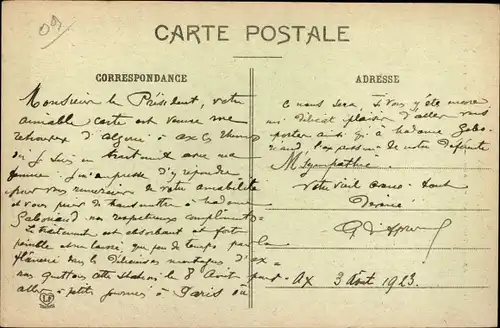 09
CARTE POSTALE
CORRESPONDANCE
ADRESSE
Monsieur le Président, votre
aimable carte est venue me
retrouver d'Algérie à ax les Thermes
où je suis en traitement avec ma
femme. J'ai
pour vous remercier de votre amabilité
et vous prier de transmettre à Madame
Gabouaud nos respectueux compliments
Le traitement est absorbant et fort
pénible et me laisse que peu de temps pour la
flânerie vers les délicieuses montagnes d'ax
nous quittons cette station le 8 Août pour
aller à petites journées à Paris où
ce nous sera, si vous y êtes encore
un plaisir d'aller vous
porter ainsi qu'à Madame Gabouaud
l'expression de notre déférente
sympathie
Votre vieil tout
Dévoué
Ax 3 Août 1923.
LF